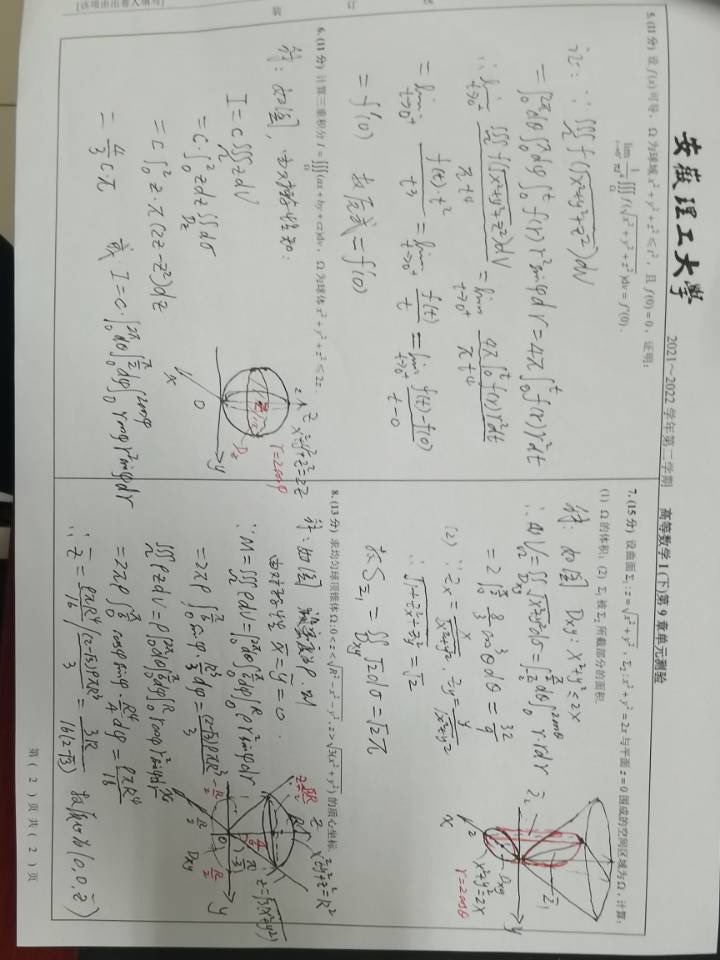 安徽理工大学
2021～2022 学年第二学期 高等数学 I (下) 第 9 章单元测验
5. (11 分) 设 f(x) 可导，Ω 为球域 x²+y²+z² ≤ t²，且 f(0)=0，证明：
lim_{t→0⁺} 1/(πt⁴) ∭_Ω f(√(x²+y²+z²))dv = f'(0).
证：∵ ∭_Ω f(√(x²+y²+z²))dV
= ∫₀^{2π}dθ∫₀^π dφ∫₀^t f(r)r²sinφdr = 4π∫₀^t f(r)r²dr
∴ lim_{t→0⁺} ∭_Ω f(√(x²+y²+z²))dV / πt⁴ = lim_{t→0⁺} 4π∫₀^t f(r)r²dt / πt⁴
= lim_{t→0⁺} f(t)·t² / t³ = lim_{t→0⁺} f(t)/t = lim_{t→0⁺} (f(t)-f(0))/(t-0)
= f'(0) 故原式 = f'(0)
6. (11 分) 计算三重积分 I = ∭_Ω (ax+by+cz)dv，Ω 为球体 x²+y²+z² ≤ 2z.
解：如图，由对称性知：
I = c∭_Ω zdV
= c·∫₀² zdz∬_{Dz} dσ
= c∫₀² z·π(2z-z²)dz
= 4/3 cπ 或 I = c·∫₀^{2π}dθ∫₀^{π/2}dφ∫₀^{2cosφ} rcosφ r²sinφdr
z
x²+y²+z²=2z
r=2cosφ
Dz
O
y
x
7. (15 分) 设曲面 Σ₁: z=√(x²+y²)，Σ₂: x²+y²=2x 与平面 z=0 围成的空间区域为 Ω，计算：
(1) Ω 的体积；(2) Σ₁ 被 Σ₂ 所截部分的面积.
解：如图 Dxy: x²+y² ≤ 2x
∴ (1) V = ∬_{Dxy} √(x²+y²)dσ = ∫_{-π/2}^{π/2}dθ∫₀^{2cosθ} r·rdr
= 2∫₀^{π/2} 8/3 cos³θdθ = 32/9
(2) ∵ z_x = x/√(x²+y²), z_y = y/√(x²+y²)
∴ √(1+z_x²+z_y²) = √2
故 S_{Σ₁} = ∬_{Dxy} √2dσ = √2π
Σ₂
Σ₁
y
Dxy
x²+y²=2x
2
x
r=2cosθ
8. (13 分) 求均匀球顶锥体 Ω: 0<z<√(R²-x²-y²), z>√(3(x²+y²)) 的质心坐标.
解：如图 设密度为ρ. 则
由对称性 x̄=ȳ=0.
∵ M = ∭_Ω ρdV = ∫₀^{2π}dθ∫₀^{π/6}dφ∫₀^R ρr²sinφdr
= 2πρ∫₀^{π/6} sinφ·R³/3 dφ = (2-√3)ρπR³/3
∭_Ω ρzdV = ρ∫₀^{2π}dθ∫₀^{π/6}dφ∫₀^R rcosφ r²sinφdr
= 2πρ∫₀^{π/6} cosφsinφ·R⁴/4 dφ = ρπR⁴/16
∴ z̄ = ρπR⁴/16 / (2-√3)ρπR³/3 = 3R/16(2-√3) 故质心为(0,0,z̄)
x²+y²+z²=R²
z=√(3(x²+y²))
y
Dxy
第 (2) 页 共 (2) 页